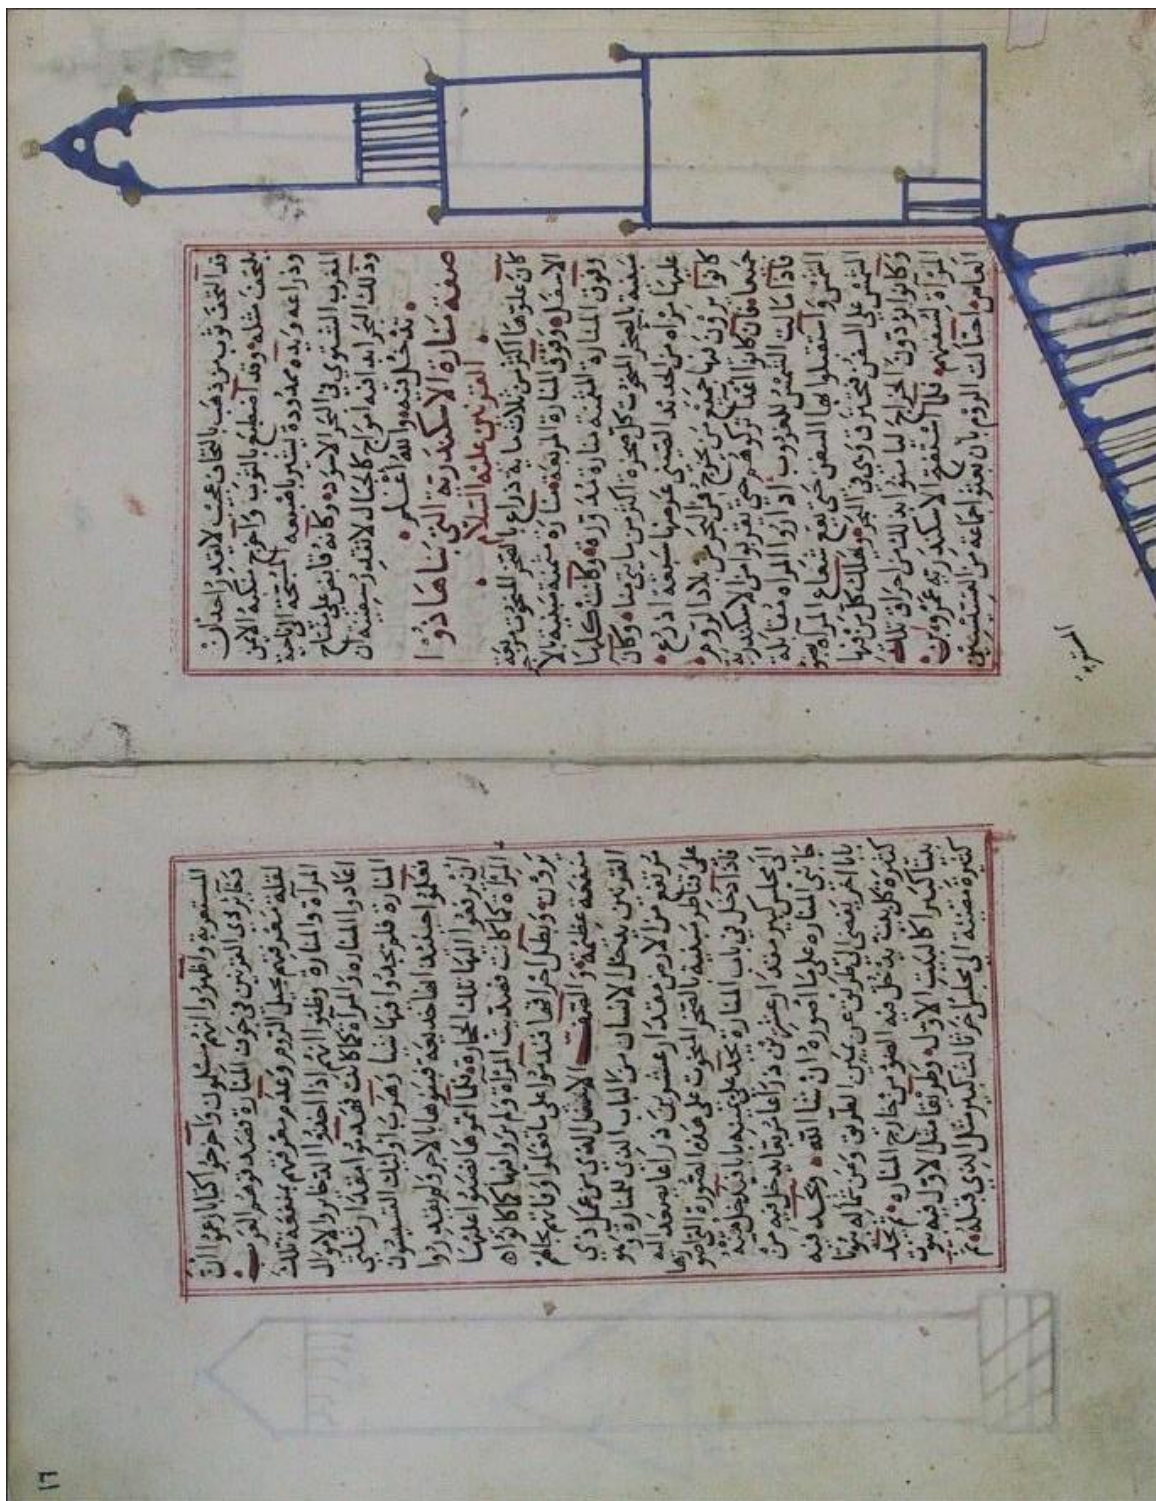 قد التحف بثوب من ذهب بالتحاف عجيب لا يقدر احد ان
يلتحف مثله وقد اضطبع بالثوب واخرج منكبه الايمن
وذراعه ويده ممدودة يشير باصبعه المسبحة الى ناحية
المغرب الشتوي في البحر الاسود وكانه قابض على مفتاح
وذلك البحر ابدا فيه امواج كالجبال لا تقدر سفينة ان
تدخل فيه والله اعلم
صفة منارة الاسكندرية التي بناها ذوا
القرنين عليه السلام
كان علوها اكثر من ثلاث ماية ذراع بالصخر المنحوت مربعة
الاسفل وفوق المنارة المربعة منارة مثمنة مبنية بالا
وفوق المنارة المثمنة منارة مدورة وكانت كلها
مبنية بالصخر المنحوت كل صخرة اكثر من مايتي منا وكان
عليها مرآة من الحديد الصيني عرضها سبعة اذرع
كانوا يرون فيها جميع من يخرج في البحر من بلاد الروم
جميعا فان كانوا اعدا تركوهم حتى يقربوا من الاسكندرية
فاذا مالت الشمس للغروب اداروا المراه مقابلة
الشمس واستقبلوا بها السفن حتى يقع شعاع المراه بضو
الشمس على السفن فتحترق في البحر ويهلك كل من فيها
وكانوا يؤدون الخراج ليامنوا بذلك من احراق تلك
المرآة لسفنهم فلما استفتح الاسكندرية عمرو بن
العاص احتالت الروم بان بعثوا جماعة من القسيسين
المستعربة
المستعربة واظهروا انهم مسلمون واخرجوا كتابا زعموا ان
ذخاير ذي القرنين في جوف المنارة فصدقوهم العرب
لقلة معرفتهم بحيل الروم وعدم معرفتهم بمنفعة تلك
المرآة والمنارة وظنوا انهم اذا اخذوا الذخاير والاموال
اعادوا المناره والمرآة كما كانت فهدموا مقدار ثلثي
المنارة فلم يجدوا فيها شيئا وهرب اوليك القسيسون
فعلموا حينيذ انها خديعة فبنوها بالاجر ولم يقدروا
ان يرفعوا اليها تلك الحجارة فلما اتموها نصبوا عليها
المرآة كما كانت فصديت المرآة ولم يروا فيها كما كانوا
يرون وبطل احراقها فندموا على ما فعلوا وفاتهم
منفعة عظيمة والنصف الاسفل الذي من عمل ذي
القرنين يدخل الانسان من الباب الذي للمنارة وهو
مرتفع من الارض مقدار عشرين ذراعا يصعد اليه
على قناطر مبنية بالصخر المنحوت على هذه الصورة التي اصورها
فاذا دخل في باب المنارة يجد على يمينه بابا فيدخل فيه
الى مجلس كبير مقدار عشرين ذراعا مربعا يدخل فيه من
جانبي المناره على ما اصوره ان شا الله وتجد فيه
بابا اخر يفضي الى طريق عن يمين الطريق ومن شماله بيوتا
كثيرة كل بيت يدخل فيه الضو من خارج المناره ثم يجد
بيتا كبيرا كالبيت الاول وطريقا مثل الاول فيه بيوت
كثيرة مضيئة الى مجلس اخر ثالث كبير مثل الذي قبله ثم
١٦